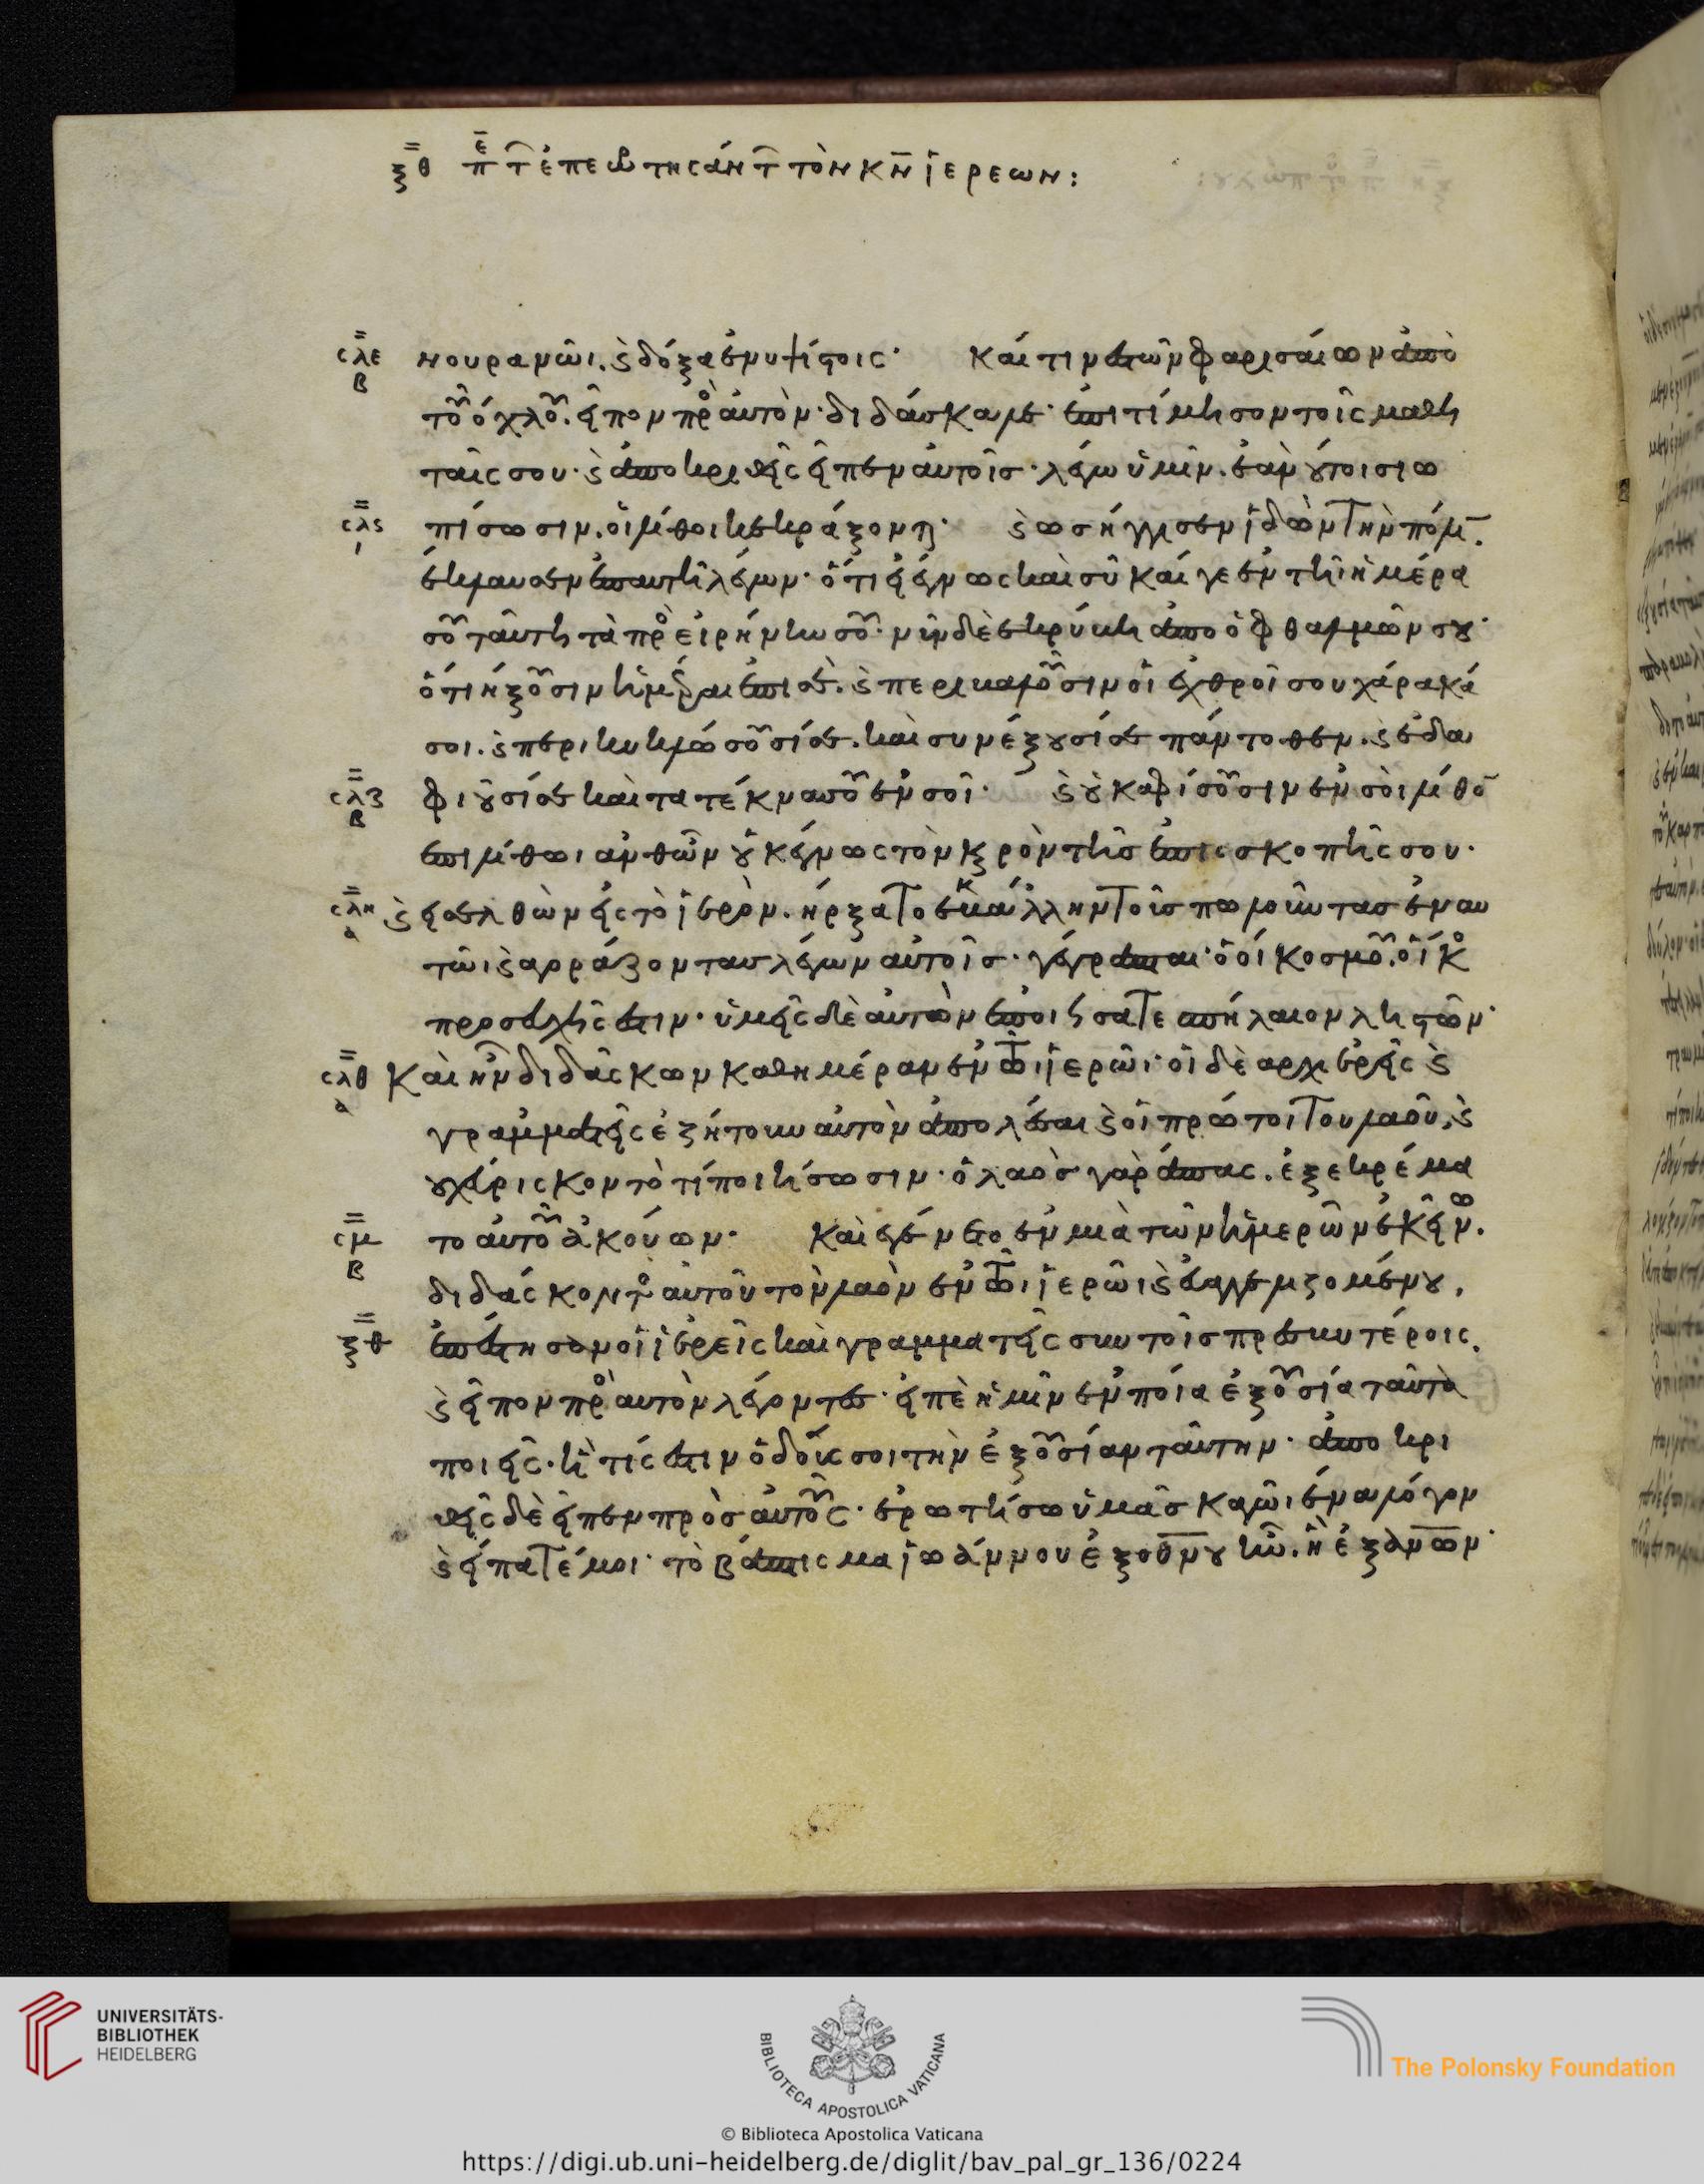 ξθ π̅ε̅ τ̅ ἐπερωτησάντ̅ τὸν κ̅ν̅ ἱερεων:
σλε β νουρανῶι. ϗ δόξα ἐν υψίστοις· Καί τινες τῶν φαρισαίων ἀπὸ
τοῦ ὄχλου. εἶπον πρὸς ἀυτὸν· διδάσκαλε· ἐπιτίμησον τοῖς μαθη
ταῖς σου· ϗ ἀποκριθεὶς εἶπεν ἀυτοῖσ· λέγω ὑμῖν. ἐὰν οὗτοι σιω
σλς ι πίσωσιν. οἱ λίθοι κεκράξονται· ϗ ωσ ήγγισεν ἰδὼν τὴν πόλιν.
ἔκλαυσεν ἐπ αυτῆ λέγων· ὅτι εἰ έγνως καὶ σὺ καί γε ἐν τῆ ἡμέρα
σου ταύτη τὰ πρὸς εἰρήνην σου· νῦν δὲ ἐκρύβη ἀπο ὀφθαλμῶν σου·
ὅτι ήξουσιν ἡμέραι ἐπι σὲ. ϗ περικαλοῦσιν οἱ ἐχθροί σου χάρακά
σοι. ϗ περικυκλώσουσί σε. καὶ συνέξουσί σε πάντοθεν. ϗ εδα
σλζ β φιοῦσί σε καὶ τα τέκνα σου ἐν σοὶ· ϗ οὐκ αφίσουσιν ἐν σὸι λίθον
ἐπι λίθωι ανθῶν οὐκ έγνως τὸν κξρὸν τῆσ ἐπισσκοπῆς σου·
σλη α ϗ εισελθὼν εἰς τὸ ἱερὸν. ήρξατο ἐκβάλλην τοῖσ πωλοῦντασ ἐν αυ
τῶι ϗ αγοράζοντασ λέγων ἀυτοῖσ· γέγραπται· ὁ οἶκοσ μου. οἶκος
προσευχῆς ἐστιν· ὑμεῖς δὲ ἀυτὸν ἐποιήσατε σπήλαιον ληστῶν·
σλθ α Καὶ ην διδάσκων καθημέραν ἐν τῶι ἱερῶι· οἱ δὲ αρχιερεῖς ϗ
γραμματεῖς ἐζήτουν αὐτὸν ἀπολέσαι ϗ οἱ πρῶτοι του λαοῦ. ϗ
οὐχ εύρισκον τὸ τί ποιήσωσιν· ὁ λαὸσ γὰρ ἅπας. ἐξεκρέμα
σμ β το ἀυτοῦ ἀκούων· Καὶ ἐγένετο ἐν μιὰ τῶν ἡμερῶν ἐκείνων.
διδάσκοντος ἀυτοῦ τὸν λαὸν ἐν τῶι ἱερῶι ϗ ἐυαγγελιζομένου,
ξθ ἐπέστησαν οἱ ἱερεῖς καὶ γραμματεῖς συν τοῖσ πρεσβυτέροις.
ϗ εἶπον πρὸς αυτὸν λέγοντες· ἐιπὲ ἡμῖν ἐν ποία ἐξουσία ταῦτα
ποιεῖς· ἢ τίς ἐστιν ὁ δούς σοι τὴν ἐξουσίαν ταύτην· ἀποκρι
θεὶς δὲ εἶπεν πρὸσ ἀυτοὺς· ἐρωτήσω ὑμᾶσ καγῶι ἕνα λόγον
ϗ εἴπατέ μοι· τὸ βάπτισμα ἰωάννου ἐξ ο̅υ̅ν̅ου ἦν. ἢ ἐξ α̅ν̅ων·
UNIVERSITÄTS-
BIBLIOTHEK
HEIDELBERG
BIBLIOTECA APOSTOLICA VATICANA
The Polonsky Foundation
© Biblioteca Apostolica Vaticana
https://digi.ub.uni-heidelberg.de/diglit/bav_pal_gr_136/0224